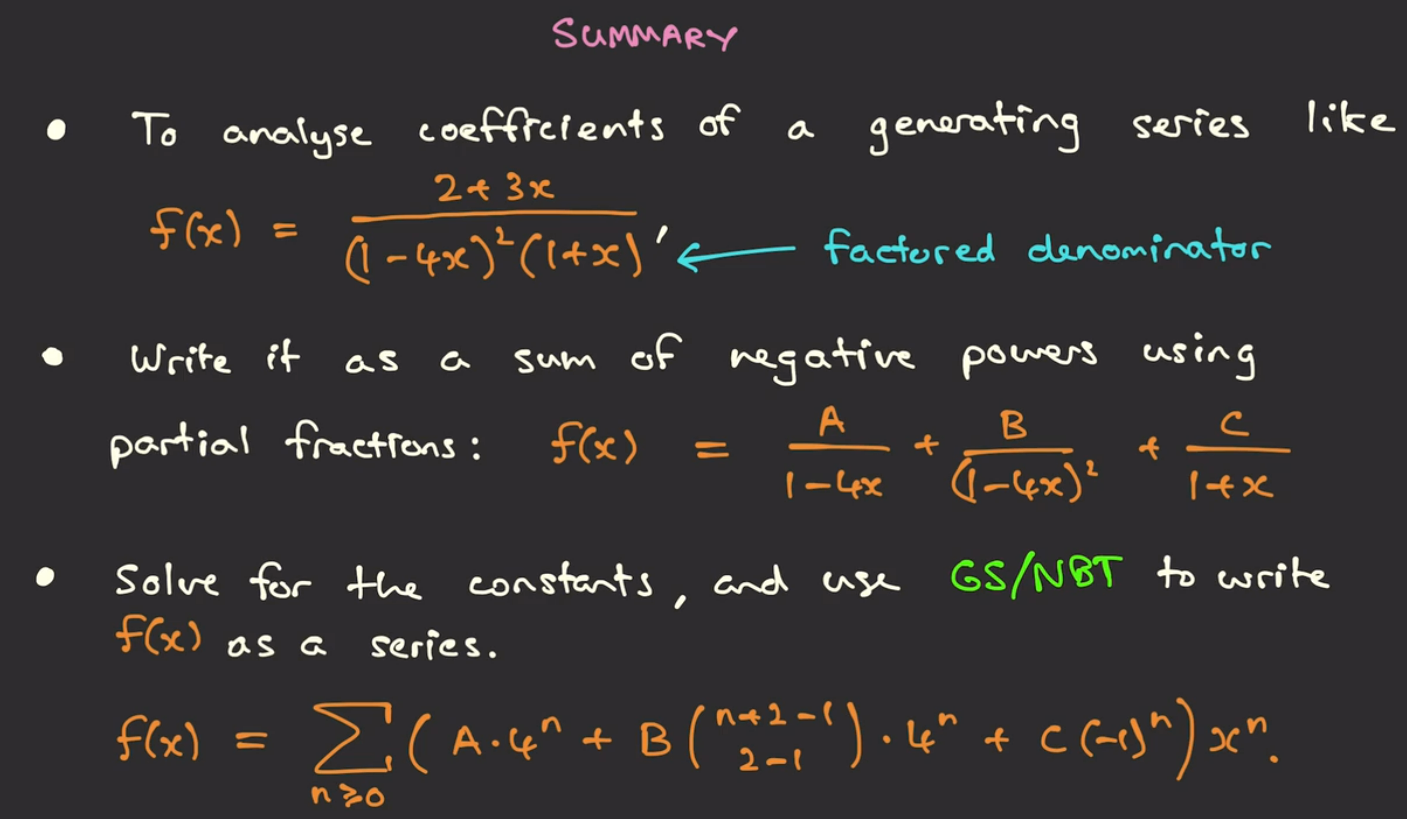 SUMMARY
• To analyse coefficients of a generating series like
f(x) = \frac{2+3x}{(1-4x)^2(1+x)}, ← factored denominator
• Write it as a sum of negative powers using
partial fractions: f(x) = \frac{A}{1-4x} + \frac{B}{(1-4x)^2} + \frac{C}{1+x}
• Solve for the constants, and use GS/NBT to write
f(x) as a series.
f(x) = \sum_{n≥0} (A·4^n + B\binom{n+2-1}{2-1}·4^n + C(-1)^n) x^n.